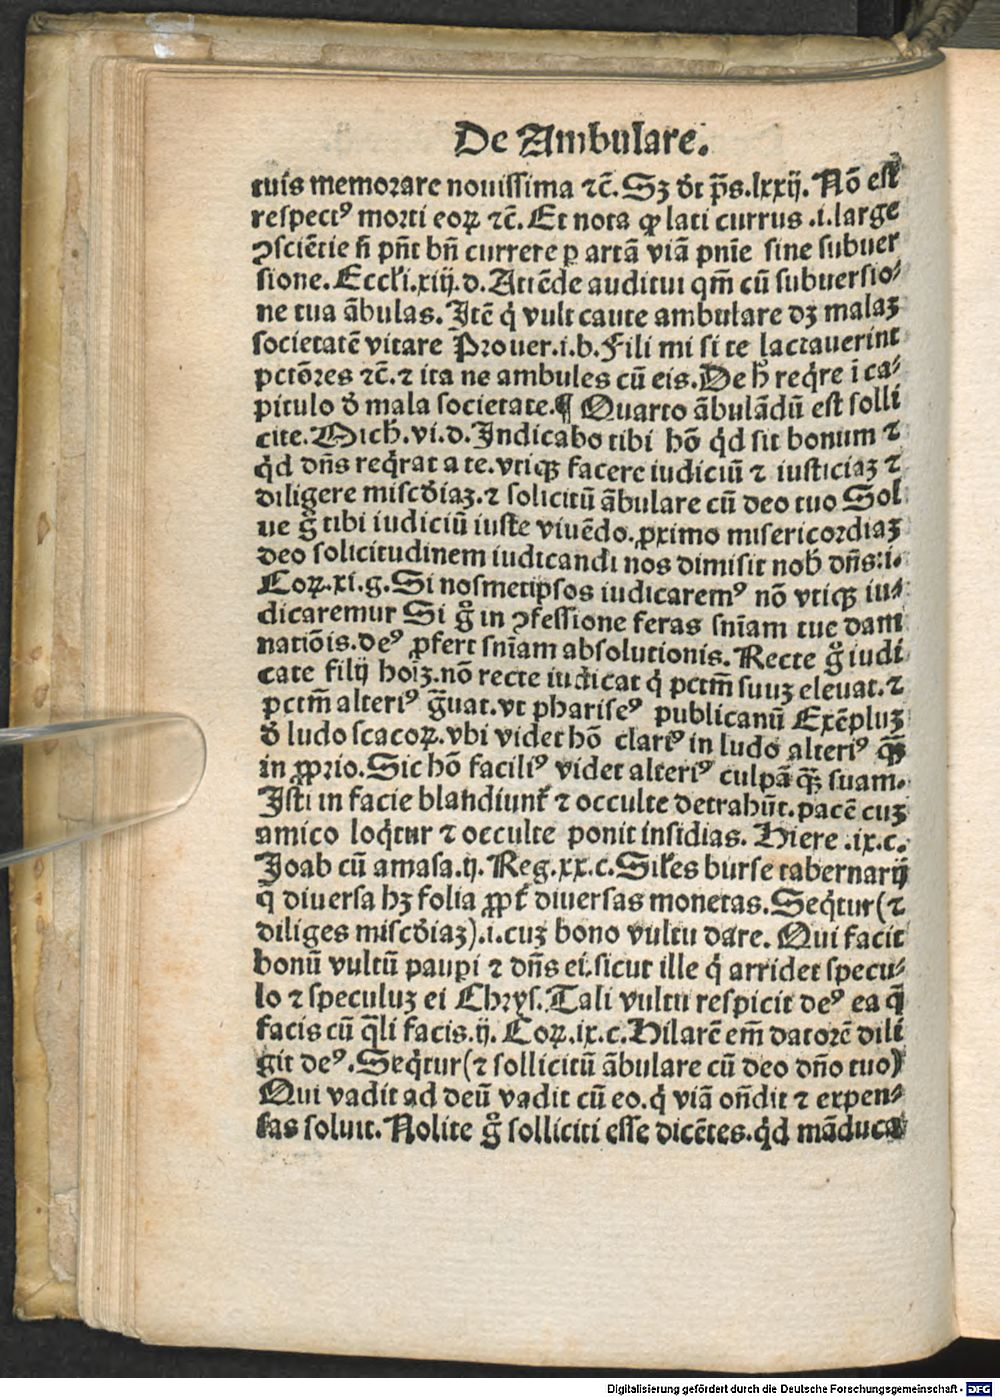 De Ambulare.
tuis memorare nouissima ⁊c̄. Sꝫ dt̄ p̄s. lxxij. Nō est
respectꝰ morti eoꝝ ⁊c̄. Et nota ꝙ lati currus .i. large
ꝯsciētie n̄ pn̄t bn̄ currere ꝑ artā viā pn̄ie sine subuer
sione. Eccłi. xiij. d. Attēde auditui qm̄ cū subuersio⸗
ne tua ābulas. Itē q̇ vult caute ambulare dꝫ malaꝫ
societatē vitare Prouer. i. b. Fili mi si te lactauerint
pctōres ⁊c̄. ⁊ ita ne ambules cū eis. De h̄ req̇re ī ca⸗
pitulo đ mala societate. ¶ Quarto ābulādū est solli
cite. Mich̄. vi. d. Indicabo tibi hō q̇d sit bonum ⁊
q̇d dn̄s req̇rat a te. vtiqꝫ facere iudiciū ⁊ iusticiaꝫ ⁊
diligere misc̄diaꝫ. ⁊ solicitū ābulare cū deo tuo Sol
ue g̊ tibi iudiciū iuste viuēdo. ꝓximo misericordiaꝫ
deo solicitudinem iudicandi nos dimisit nob̄ dn̄s: i.
Coꝝ. xi. g. Si nosmetipsos iudicaremꝰ nō vtiqꝫ iu⸗
dicaremur Si g̊ in ꝯfessione feras sn̄iam tue dam
natiōis. deꝰ ꝓfert sn̄iam absolutionis. Recte g̊ iudi
cate filij hoīꝫ. nō recte iudicat q̇ pctm̄ suuꝫ eleuat. ⁊
pctm̄ alteriꝰ ḡuat. vt phariseꝰ publicanū Exēpluꝫ
đ ludo scacoꝝ. vbi videt hō clariꝰ in ludo alteriꝰ q̄ꝫ
in ꝓprio. Sic hō faciliꝰ videt alteriꝰ culpā q̄ꝫ suam.
Isti in facie blandiunt̄ ⁊ occulte detrahūt. pacē cuꝫ
amico loq̇tur ⁊ occulte ponit insidias. Hiere .ix. c.
Ioab cū amasa. ij. Reg. xx. c. Siłes burse tabernarij
q̇ diuersa hꝫ folia ꝓpt̄ diuersas monetas. Seq̇tur (⁊
diliges misc̄diaꝫ) .i. cuꝫ bono vultu dare. Qui facit
bonū vultū pauꝑi ⁊ dn̄s ei. sicut ille q̇ arridet specu⸗
lo ⁊ speculuꝫ ei Chrys. Tali vultu respicit deꝰ ea q̄
facis cū q̄li facis. ij. Coꝝ. ix. c. Hilarē em̄ datorē dili
git deꝰ. Seq̇tur (⁊ sollicitū ābulare cū deo dn̄o tuo)
Qui vadit ad deū vadit cū eo. q̇ viā on̄dit ⁊ expen⸗
sas soluit. Nolite g̊ solliciti esse dicētes. q̇d māduca
Digitalisierung gefördert durch die Deutsche Forschungsgemeinschaft - DFG